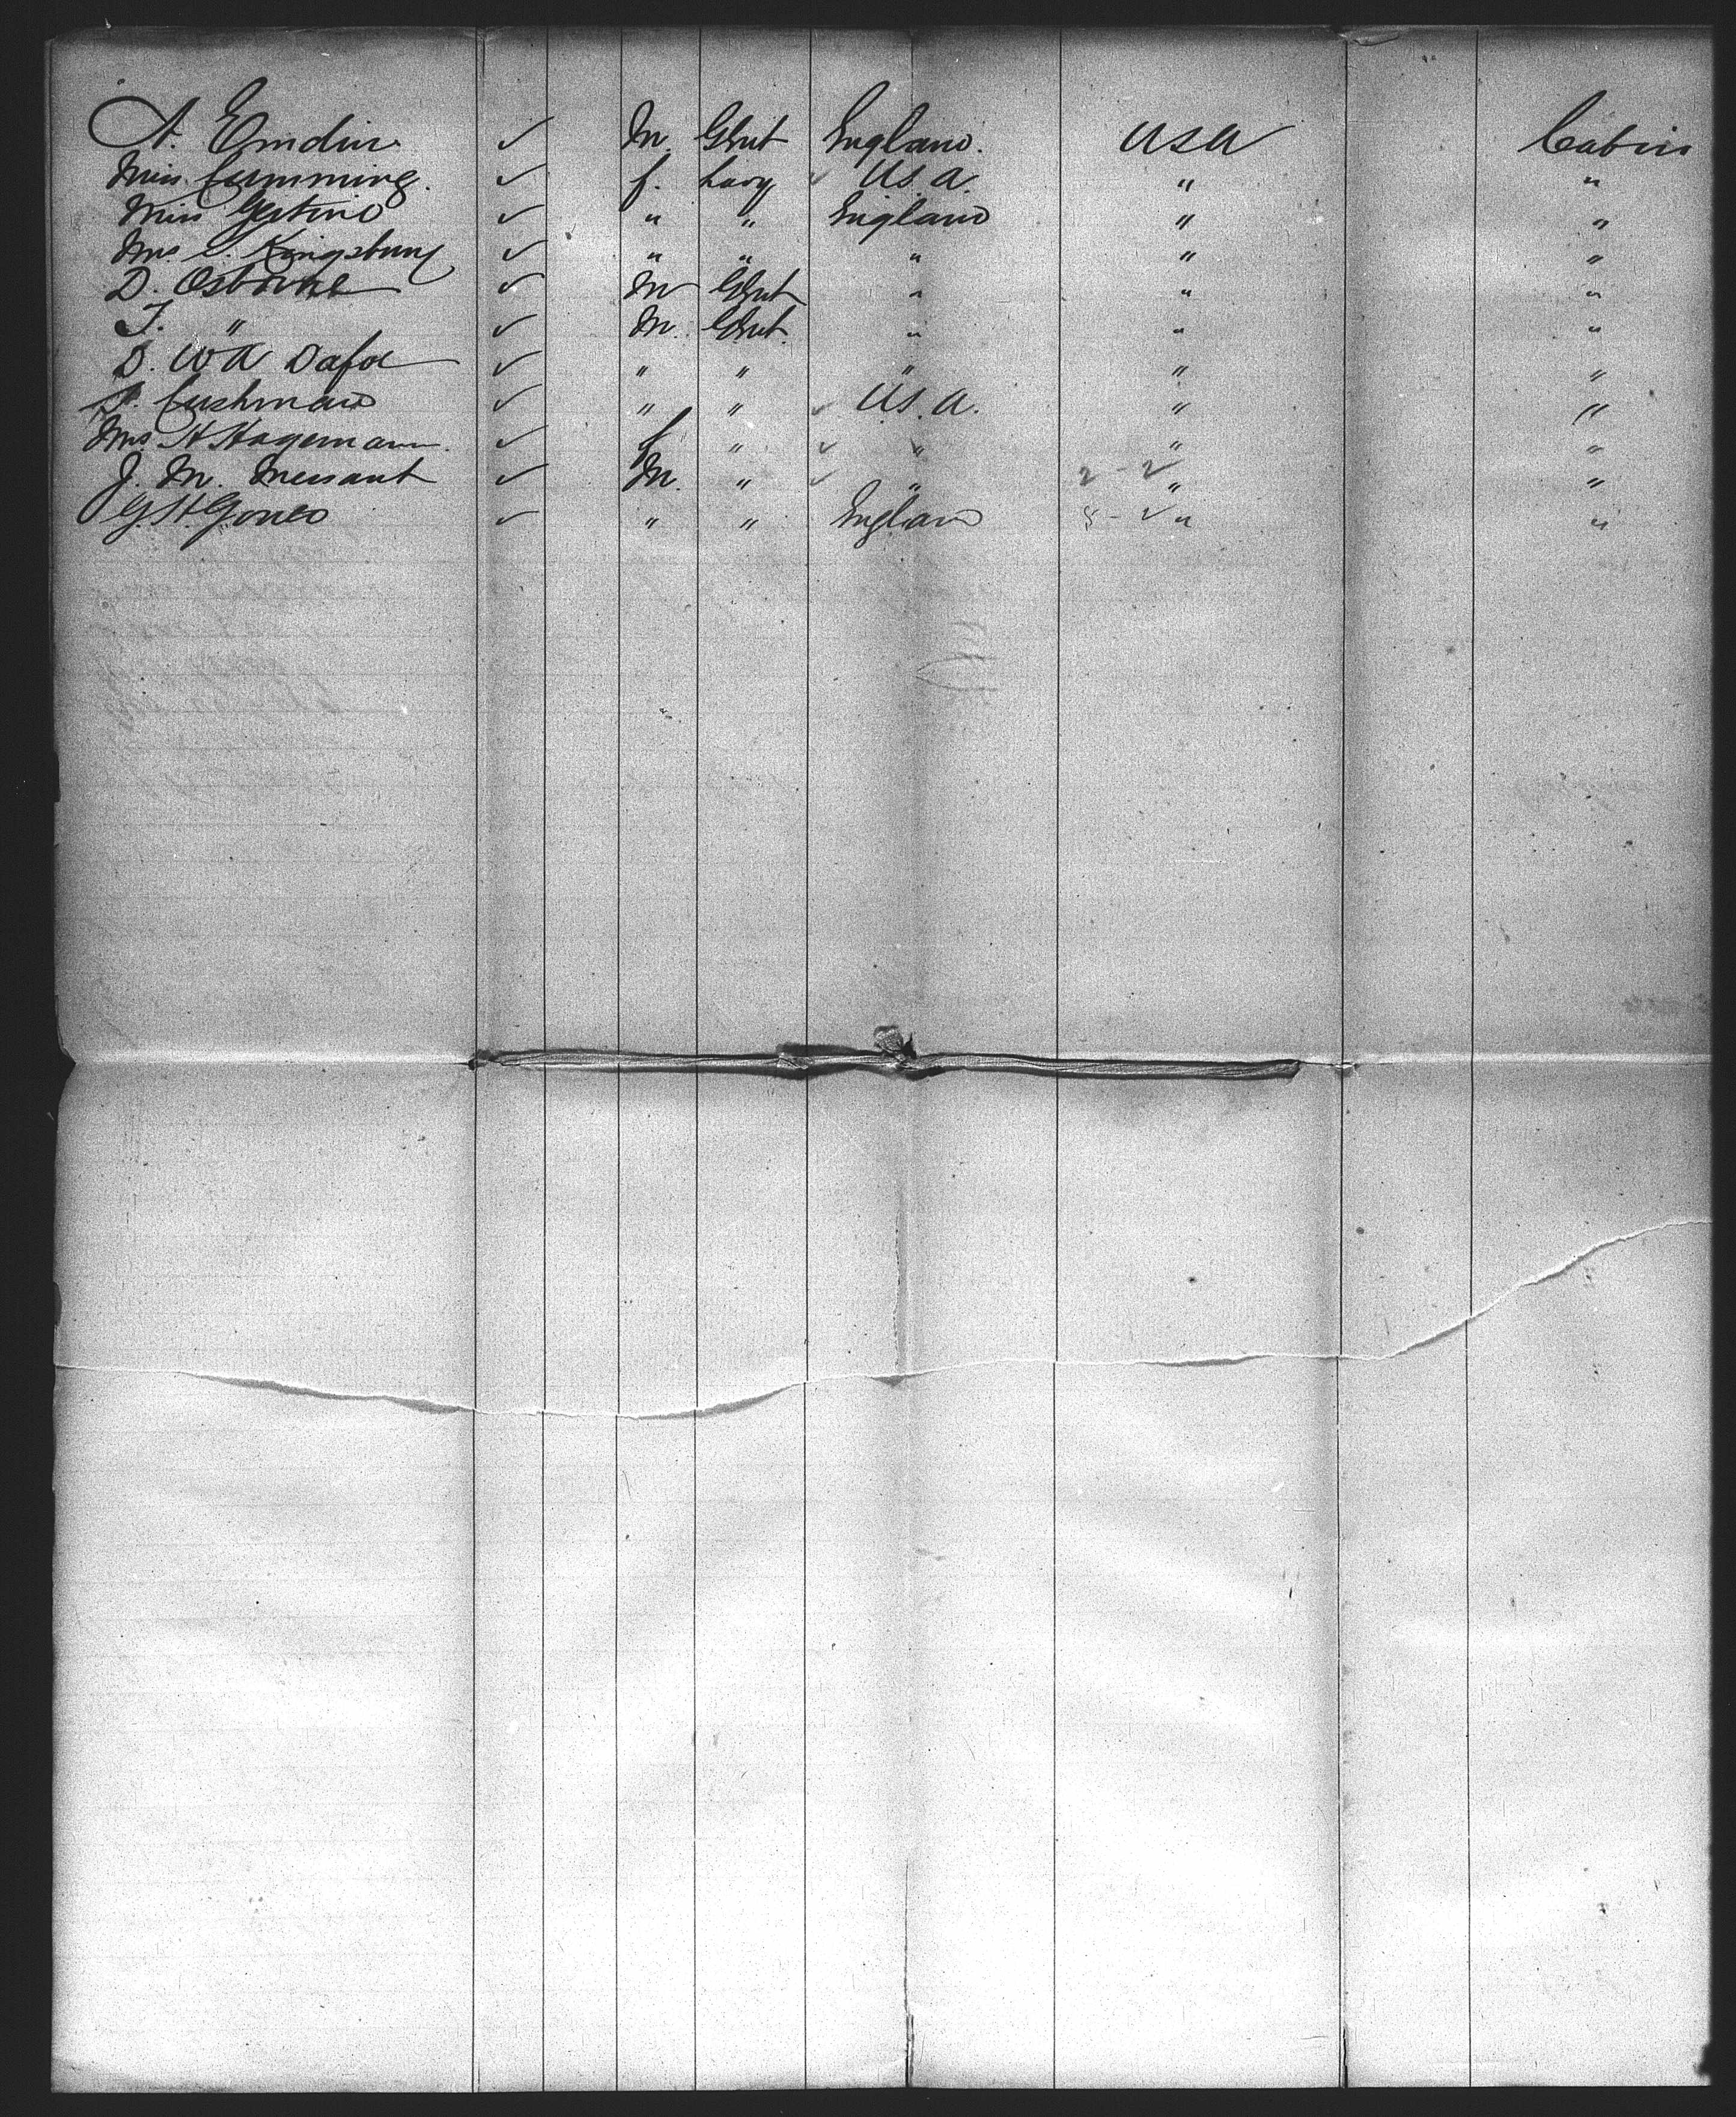 A. Emdin ✓ M. Gent England. USA Cabin
Miss Cumming. ✓ f. Lady ✓ U.S.A. " "
Miss ✓ " " England " "
Mrs C. Kingsbury ✓ " " " " "
D. Osborne ✓ M Gent " " "
T. " ✓ M. Gent. " " "
D. W A Dafoe ✓ " " " " "
Cushman ✓ " " ✓ U.S.A. " "
Mrs H Hagemann. ✓ f " ✓ " " "
J. M. ✓ M. " ✓ " 2 - 2 " "
G. H. Jones ✓ " " England 8 - ✓ " "